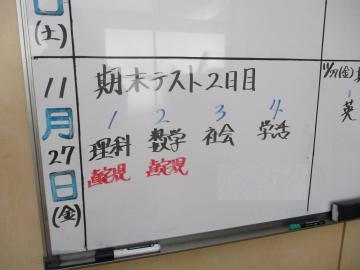 日
(土)
11
月
27
日
(金)
期末テスト2日目
1 2 3 4
理科 数学 社会 学活
点呼 点呼
11/27(金)
1
英